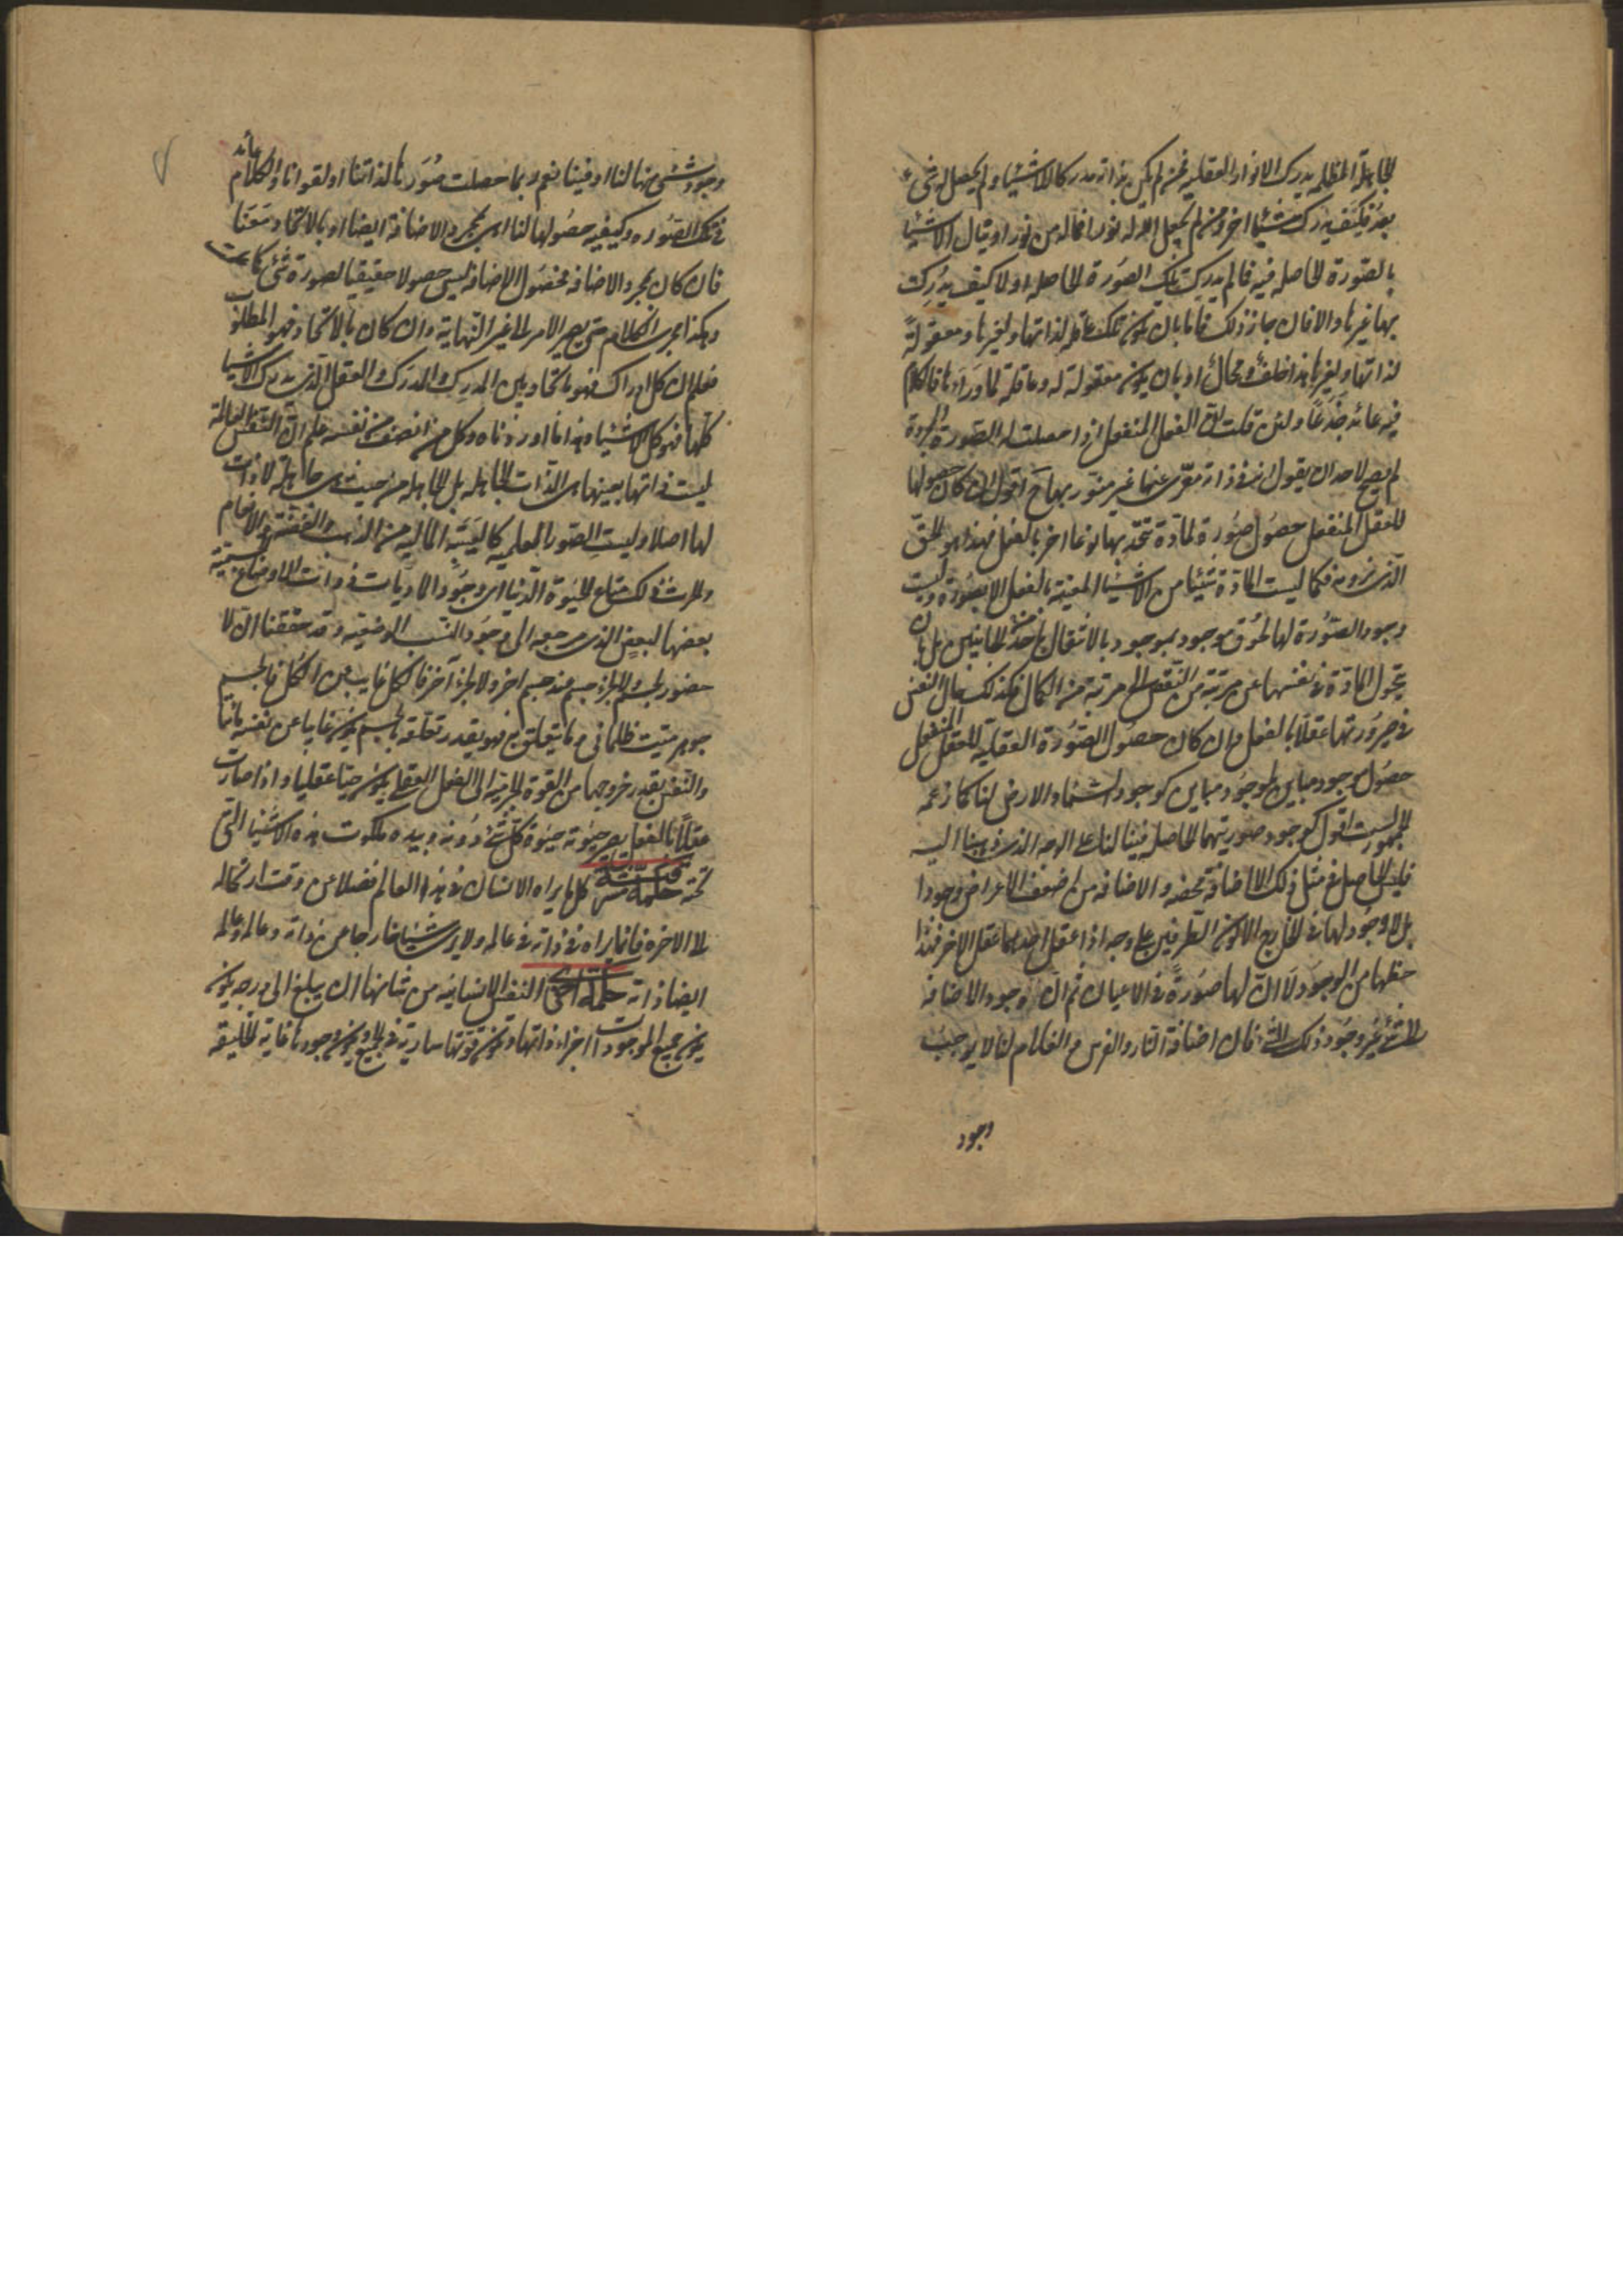 الجاهلة المظلمه يدرك الانوار العقليه فمن لم يكن بذاته مدركا للاشياء ولم يحصل له شیء
بعد فكيف يدرك شيئا اخر ومن لم يجعل الله له نورا فما له من نور او يقال الاشيا
بالصورة الحاصله فيه فما لم يدرك تلك الصورة الحاصله اولا كيف يدرك
بها غيرها والا فان جاز ذلك فاما بان يكون تلك عاقله لذاتها ولغيرها ومعقولة
لذاتها ولغيرها هذا خلف ومحال او بان يكون معقولة له وعاقلة لما وراءها فالكلام
فيه عائد جذعا ولئن قلت ان العقل المنفعل اذا حصلت له الصورة المجردة
لم يصح لاحد ان يقول انه فى ذاته معرى عنها غير متنور بها اقول ان كان حصولها
للعقل المنفعل حصول صورة لمادة تتحد بها نوعا اخر بالفعل فهذا هو الحق
الذى نرومه فكما ليست المادة شيئا من الاشياء المعينة بالفعل الا بصورة وليست
وجود الصورة لها لحوق موجود بموجود بالانتقال من احد الجانبين بل بان
يتحول المادة فى نفسها من مرتبة من النقص الى مرتبة من الكمال فكذلك حال النفس
فى صيرورتها عقلا بالفعل وان كان حصول الصورة العقليه للعقل المنفعل
حصول موجود مباين لموجود مباين كوجود السماء والارض لنا كما زعمه
الجمهور لست اقول كوجود صورتيهما الحاصله فينا لنا على الوجه الذى ذهبنا اليه
فليس الحاصل فى مثل ذلك الا اضافة محضه والاضافه من اضعف الاعراض وجودا
بل لا وجود لها فى الخارج الا كون الطرفين على وجه اذا عقل احدهما عقل الاخر فهذا
حظها من الوجود لا ان لها صورة فى الاعيان ثم ان وجود الاضافه
الى شئ غير وجود ذلك الشئ فان اضافة الدار والفرس والغلام لنا لا يوجب
وجود
وجود شئ منها لنا او فينا نعم ربما حصلت صورها لذاتنا او لقوانا والكلام عائد
فى تلك الصوره وكيفيه حصولها لنا اهى بمجرد الاضافة ايضا ام بالاتحاد معنا
فان كان بمجرد الاضافه فحصول الاضافه ليس حصولا حقيقيا لصورة شئ كما مرت
وهكذا يجرى الكلام حتى يصير الامر الى غير النهاية وان كان بالاتحاد فهو المطلوب
فعلم ان كل ادراك فهو باتحاد بين المدرك والمدرك والعقل الذى يدرك الاشيا
كلها فهو كل الاشياء هذا ما اوردناه وكل من انصف من نفسه علم ان النفس العالمة
ليست ذاتها بعينها هى الذات الجاهله بل الجاهله من حيث هى جاهلة لا ذات
لها اصلا وليست الصور العلميه كالقنية الماليه من الذهب والفضة والانعام
والحرث ذلك متاع الحيوة الدنيا اى وجود الماديات ذوات الاوضاع بنسبة
بعضها لبعض الذى مرجعه الى وجود النسب الوضعيه وقد حققنا ان لا
حضور لجسم ولا لجزء جسم عند جسم اخر ولا لجزء آخر فالكل غايب عن الكل فالجسم
جوهر ميت ظلمانى وما يتعلق به فهو بقدر تعلقه بالجسم يكون غايبا عن نفسه مائتا
والنفس بقدر خروجها من القوة الجرمية الى الفعل العقلى يكون حيا عقليا واذا صارت
عقلا بالفعل يصير حيوته حيوة كل شئ دونه وبيده ملكوت هذه الاشياء التى
تحته حكمة عرشية كل ما يراه الانسان فى هذا العالم فضلا عن وقت ارتحاله
الى الاخره فانما يراه فى ذاته وفى عالمه ولا يرى شيئا خارجا عن ذاته وعالمه وعالمه
ايضا ذاته حكمة اخرى النفس الانسانيه من شانها ان يبلغ الى درجه يكون
يكون جميع الموجودات اجزاء ذاتها وتكون قوتها سارية فى الجميع ويكون وجودها غاية الخليقه